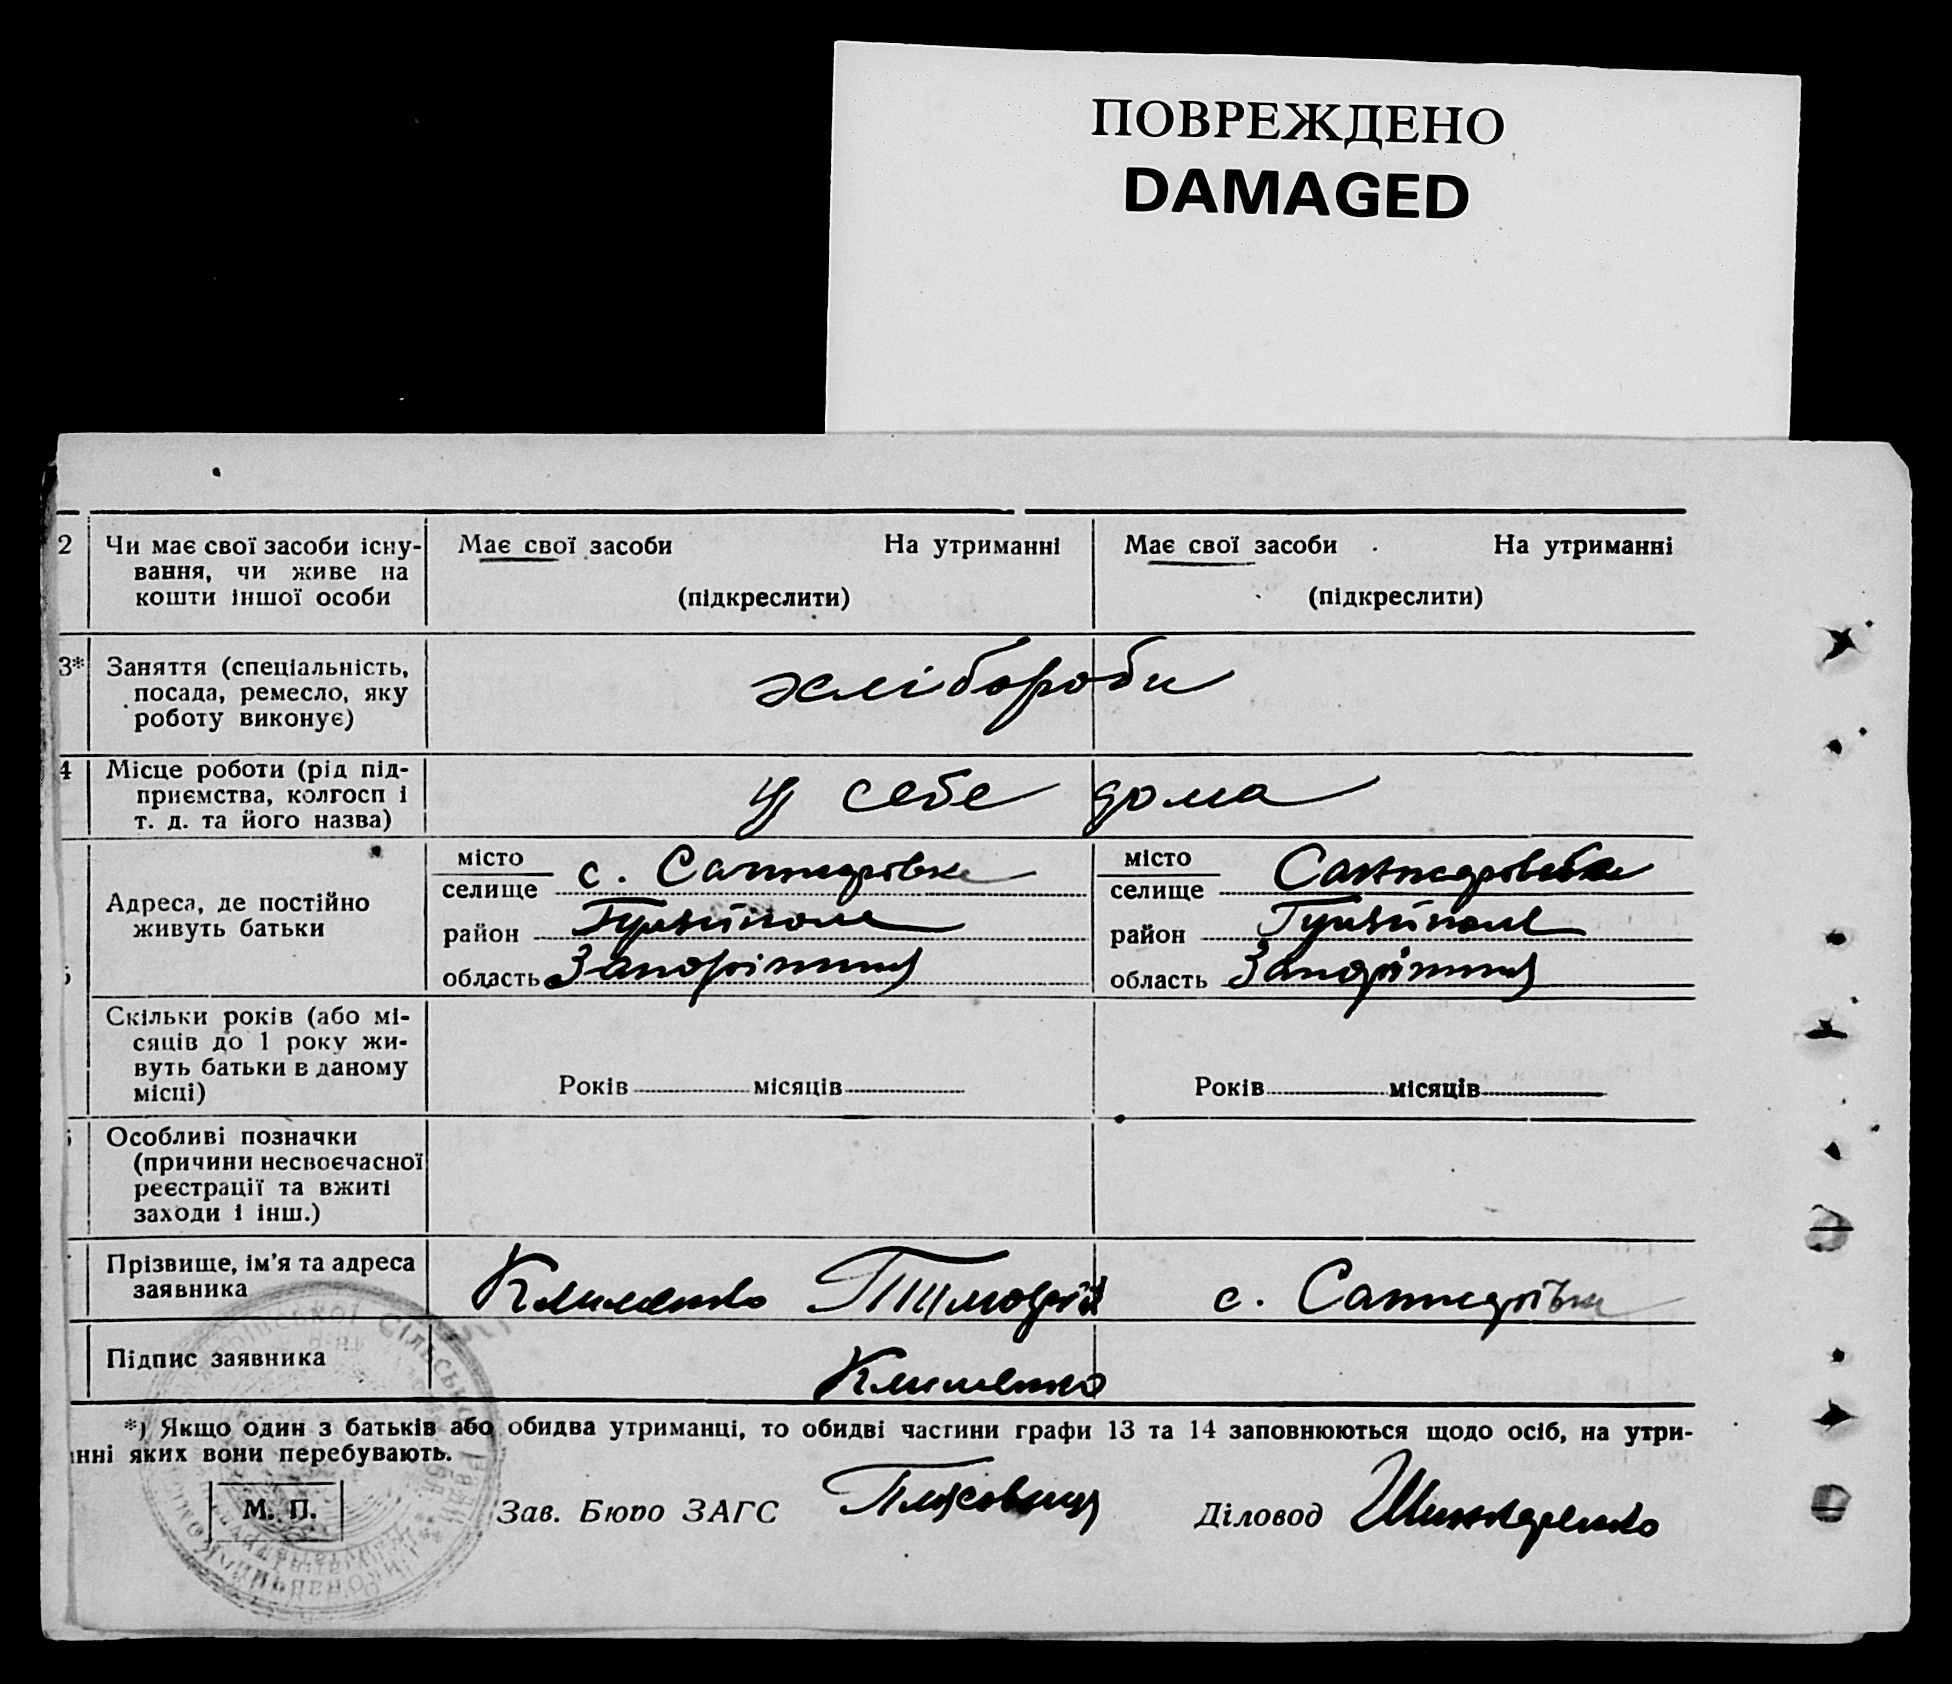 ПОВРЕЖДЕНО
DAMAGED
2 Чи має свої засоби існу-
вання, чи живе на
кошти іншої особи
Має свої засоби На утриманні
(підкреслити)
Має свої засоби На утриманні
(підкреслити)
3* Заняття (спеціальність,
посада, ремесло, яку
роботу виконує)
хлібороби
4 Місце роботи (рід під-
приємства, колгосп і
т. д. та його назва)
у себе дома
Адреса, де постійно
живуть батьки
місто
селище с. Санжарівка
район Гуляйполе
область
місто
селище
район Гуляйполе
область
Скільки років (або мі-
сяців до 1 року жи-
вуть батьки в даному
місці)
Років місяців
Років місяців
Особливі позначки
(причини несвоєчасної
реєстрації та вжиті
заходи і інш.)
Прізвище, ім'я та адреса
заявника
Клименко Тимофій с. Санжарівка
Підпис заявника
Клименко
*) Якщо один з батьків або обидва утриманці, то обидві частини графи 13 та 14 заповнюються щодо осіб, на утри-
нні яких вони перебувають.
М. П.
Зав. Бюро ЗАГС
Діловод Шинкаренко